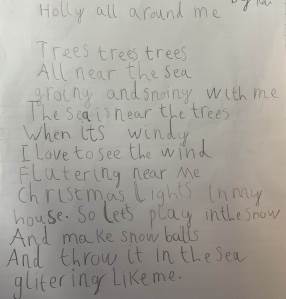 Holly all around me
Trees trees trees
All near the sea
groiny and snoiny with me
The sea is near the trees
When its windy
I love to see the wind
Flutering near me
Christmas lights in my
house. So lets play in the snow
And make snow balls
And throw it in the sea
glitering like me.